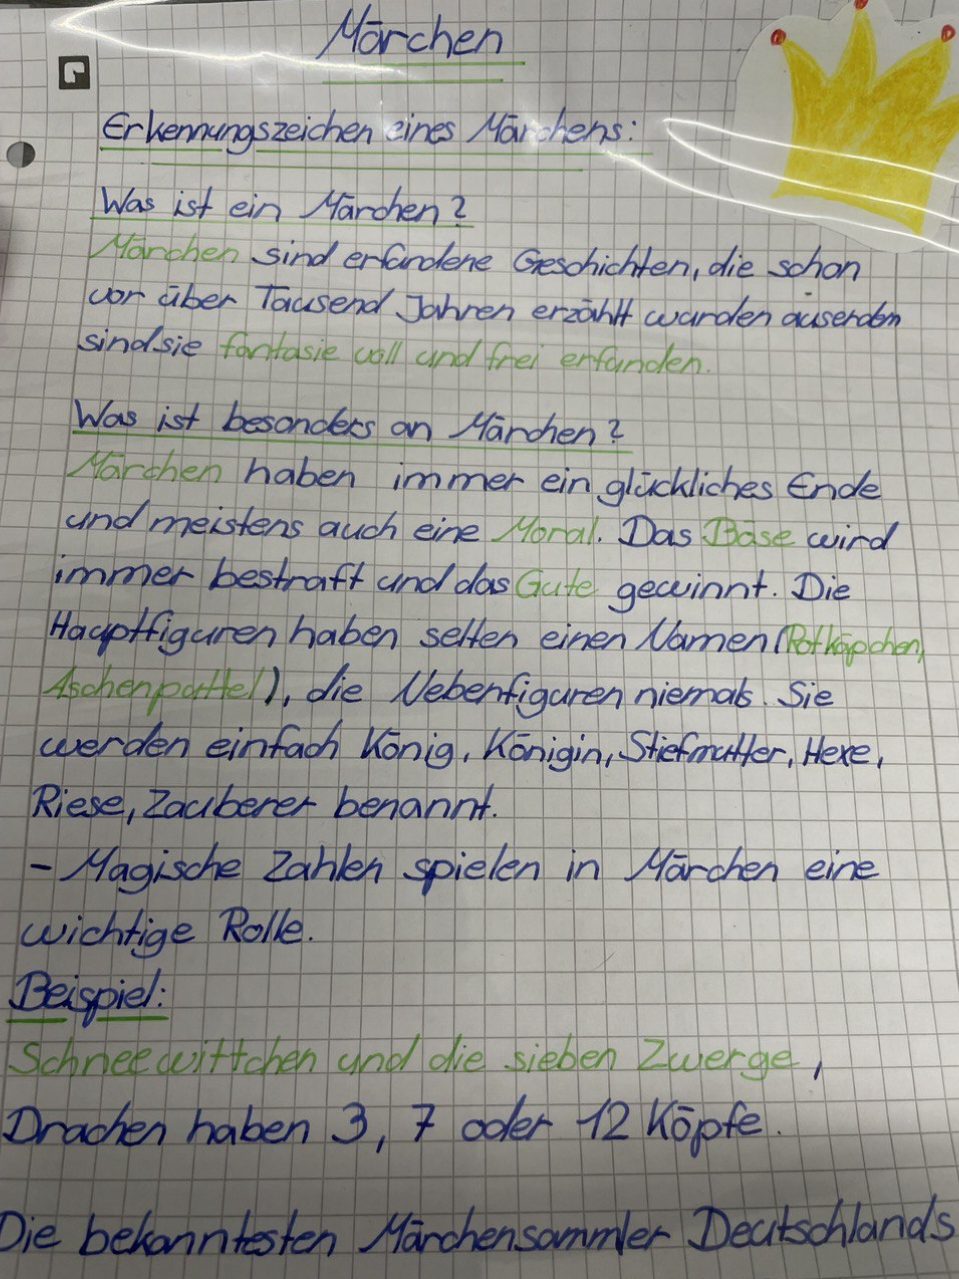 Märchen
Erkennungszeichen eines Märchens:
Was ist ein Märchen?
Märchen sind erfundene Geschichten, die schon
vor über Tausend Jahren erzählt wurden auserdem
sind sie fantasie voll und frei erfunden.
Was ist besonders an Märchen?
Märchen haben immer ein glückliches Ende
und meistens auch eine Moral. Das Böse wird
immer bestraft und das Gute gewinnt. Die
Hauptfiguren haben selten einen Namen (Rotkäpchen,
Aschenputtel), die Nebenfiguren niemals. Sie
werden einfach König, Königin, Stiefmutter, Hexe,
Riese, Zauberer benannt.
- Magische Zahlen spielen in Märchen eine
wichtige Rolle.
Beispiel:
Schneewittchen und die sieben Zwerge,
Drachen haben 3, 7 oder 12 Köpfe.
Die bekanntesten Märchensammler Deutschlands